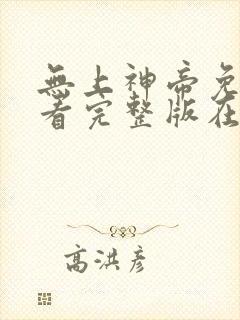 無上神帝免
看完整版在
高洪彦